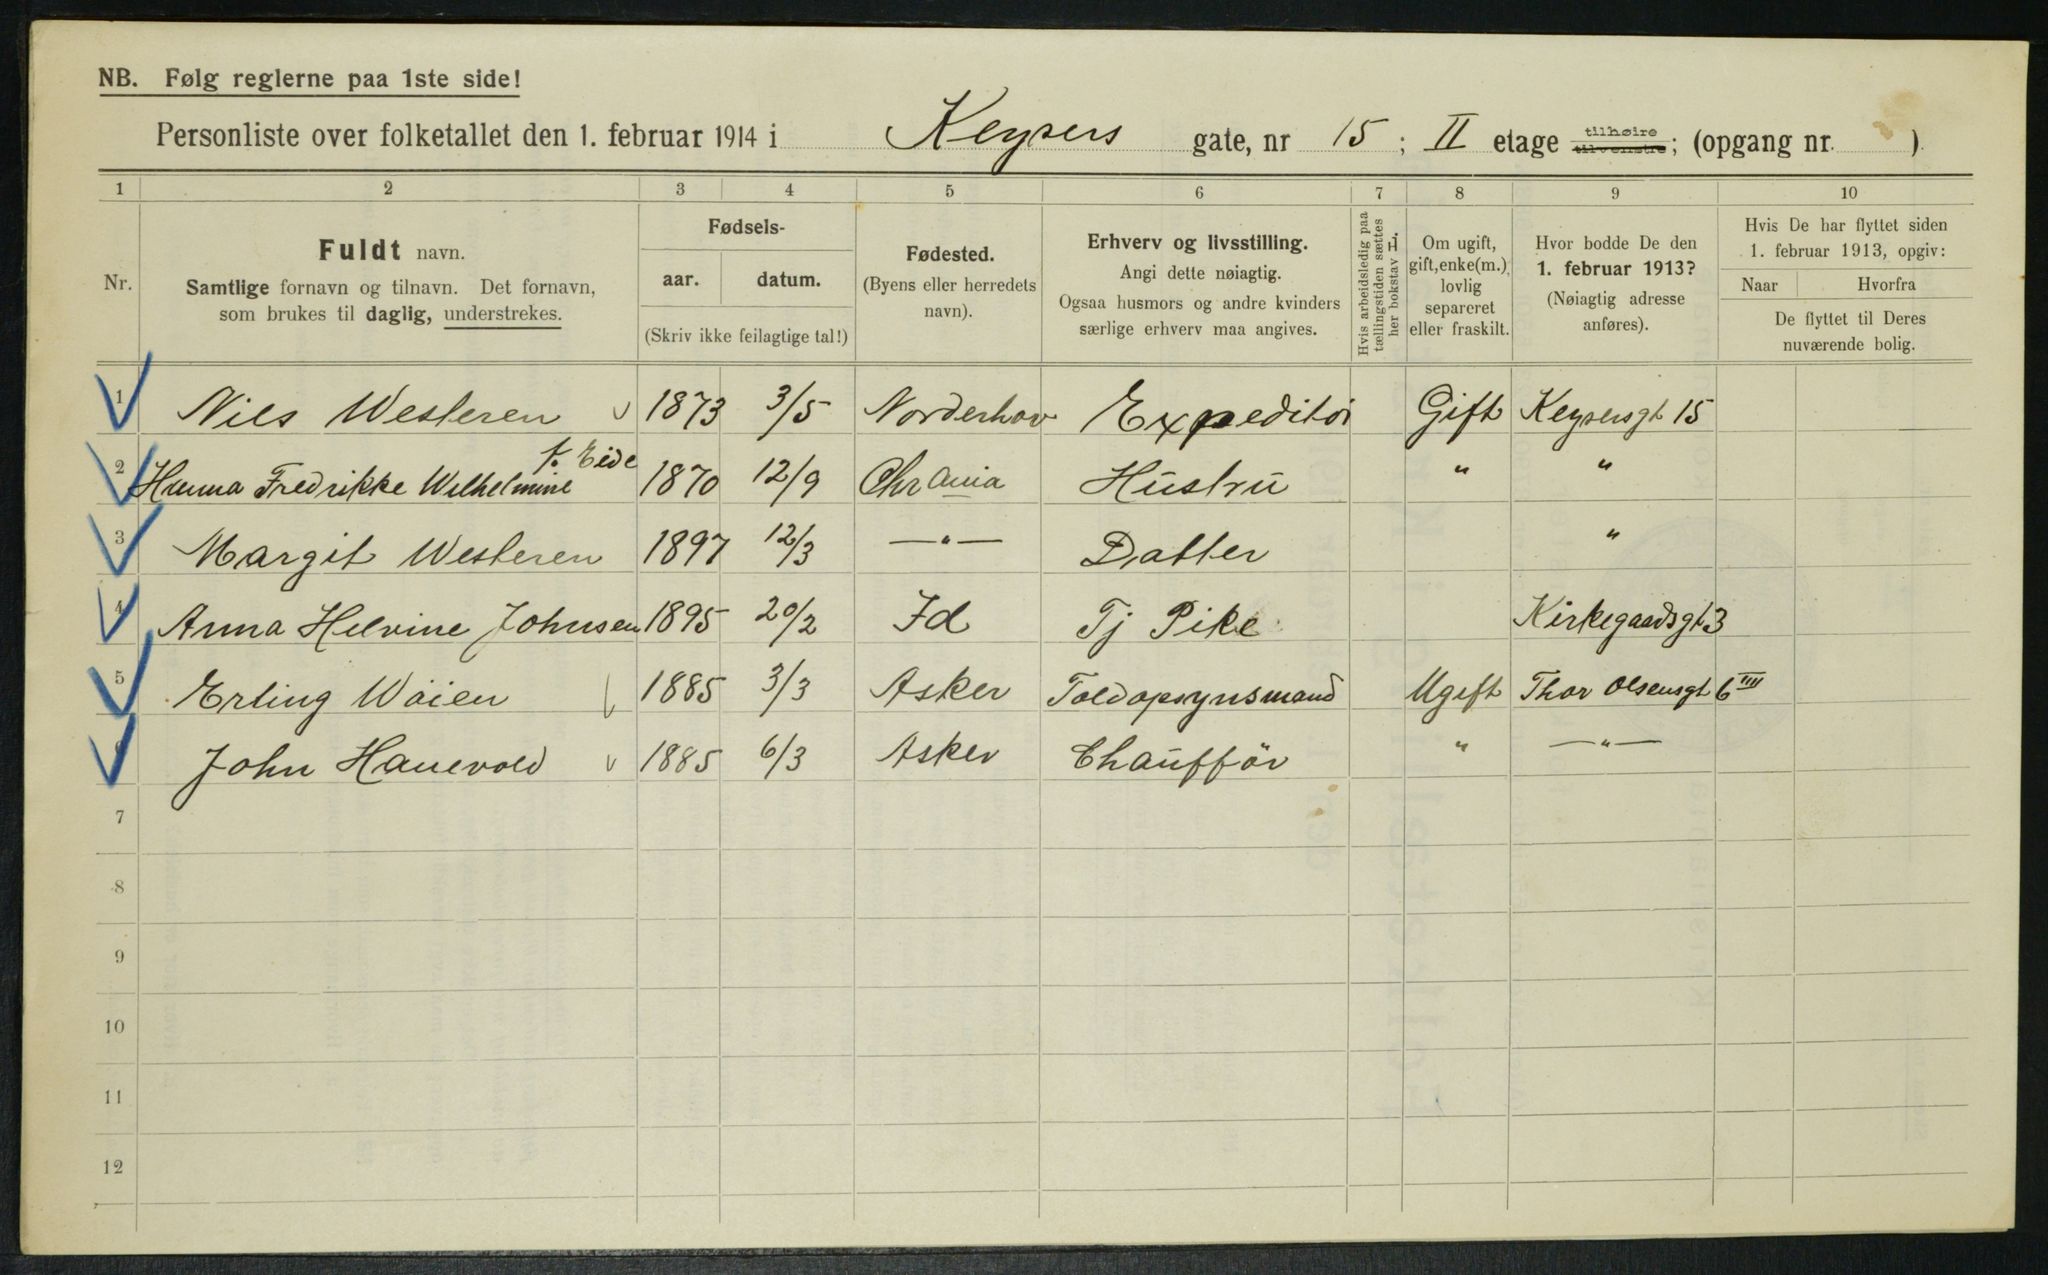 NB. Følg reglerne paa 1ste side!
Personliste over folketallet den 1. februar 1914 i Keysers gate, nr 15 ; II etage tilhøire tilvenstre; (opgang nr. )
1 2 3 4 5 6 7 8 9 10
Nr.
Fuldt navn.
Samtlige fornavn og tilnavn. Det fornavn,
som brukes til daglig, understrekes.
Fødsels-
aar. datum.
(Skriv ikke feilagtige tal!)
Fødested.
(Byens eller herredets
navn).
Erhverv og livsstilling.
Angi dette nøiagtig.
Ogsaa husmors og andre kvinders
særlige erhverv maa angives.
Hvis arbeidsledig paa
tællingstiden sættes
her bokstav L.
Om ugift,
gift, enke(m.)
lovlig
separeret
eller fraskilt.
Hvor bodde De den
1. februar 1913?
(Nøiagtig adresse
anføres).
Hvis De har flyttet siden
1. februar 1913, opgiv:
Naar Hvorfra
De flyttet til Deres
nuværende bolig.
1 Nils Westeren 1873 3/5 Norderhov Expeditör Gift Keysersgt 15
f. Eide
2 Hanna Fredrikke Wilhelmine 1870 12/9 Chrania Hustru " "
3 Margit Westeren 1897 12/3 —"— Datter "
4 Anna Helvine Johnsen 1895 20/2 Id Tj Pike Kirkegaardsgt 3
5 Erling Wöien 1885 3/3 Asker Toldopsynsmand Ugift Thor Olsensgt 6 IIII
6 John Hanevold 1885 6/3 Asker Chufför " —"—
7
8
9
10
11
12